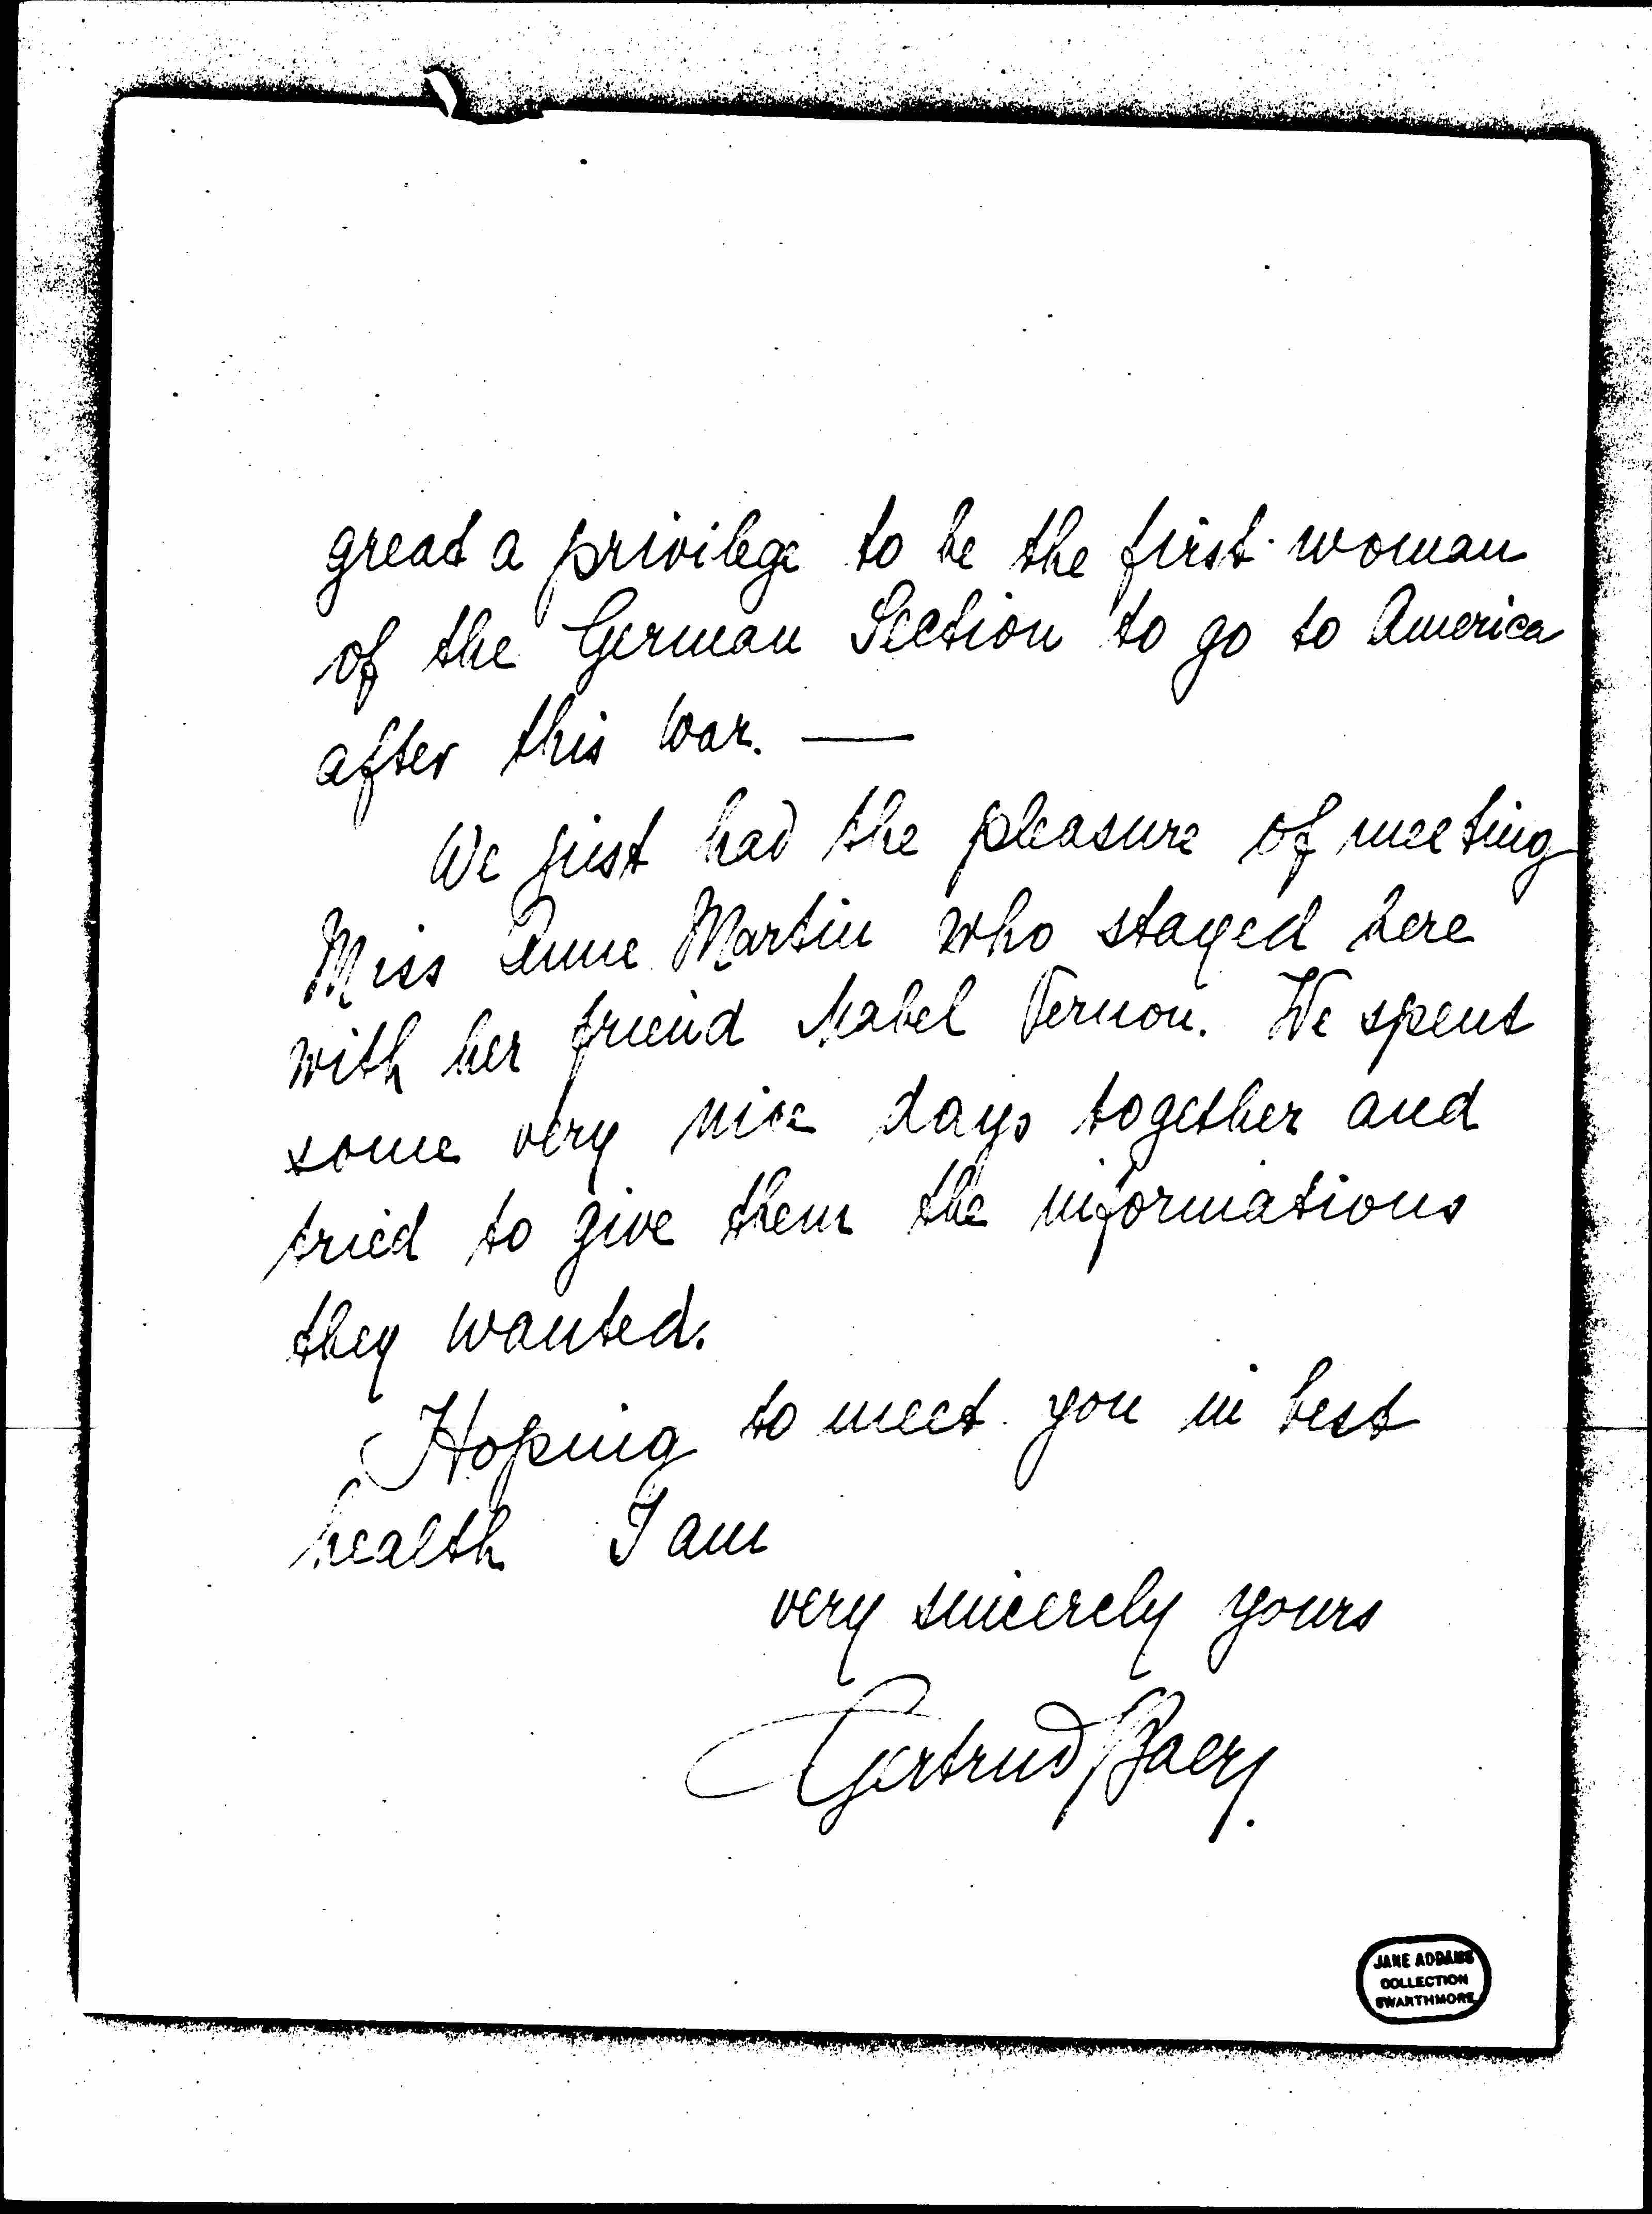 great a privilege to be the first woman
of the German Section to go to America
after this war. —
We just had the pleasure of meeting
Miss Anne Martin who stayed here
with her friend Mabel Vernon. We spent
some very nice days together and
tried to give them the informations
they wanted.
Hoping to meet you in best
health I am
very sincerely yours
Gertrud Baer.
JANE ADDAMS
COLLECTION
SWARTHMORE